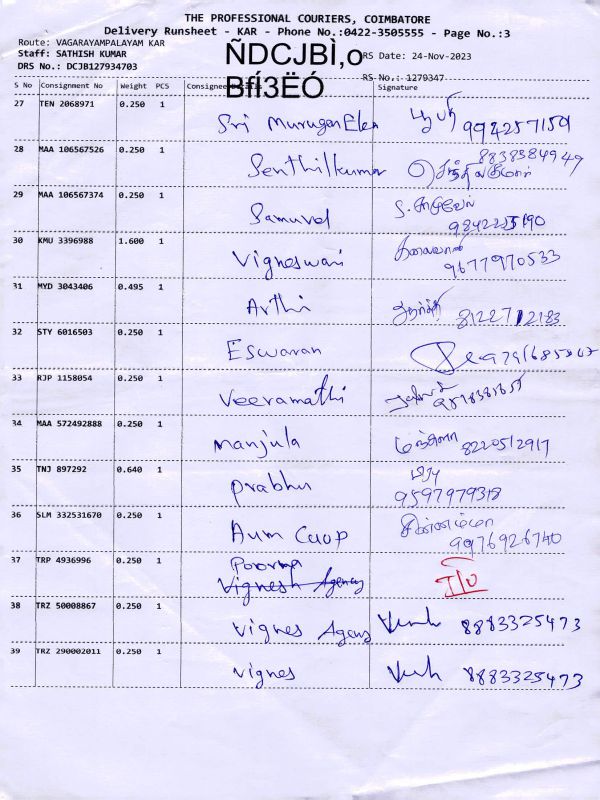 THE PROFESSIONAL COURIERS, COIMBATORE
Delivery Runsheet - KAR - Phone No.:0422-3505555 - Page No.:3
Route: VAGARAYAMPALAYAM KAR
Staff: SATHISH KUMAR
DRS No.: DCJB127934703
ÑDCJBÌ,o
BfÍ3ËÓ
RS Date: 24-Nov-2023
RS No.: 1279347
S No Consignment No Weight PCS Consignee Signature
27 TEN 2068971 0.250 1 Sri Murugan
28 MAA 106567526 0.250 1 Senthilkumar 8838584949
செந்தில்குமார்
29 MAA 106567374 0.250 1 Samuvel
9842225190
30 KMU 3396988 1.600 1 Vigneswari
9677970533
31 MYD 3043406 0.495 1 Arthi 8122712183
32 STY 6016503 0.250 1 Eswaran
33 RJP 1158054 0.250 1 Veeramathi
34 MAA 572492888 0.250 1 Manjula 8220512917
35 TNJ 897292 0.640 1 Prabhu
9597979318
36 SLM 332531670 0.250 1 Aum சின்னம்மா
9976926740
37 TRP 4936996 0.250 1 Poorna
Vignesh Agency
38 TRZ 50008867 0.250 1 Vignes Agency 8883325473
39 TRZ 290002011 0.250 1 Vignes 8883325473